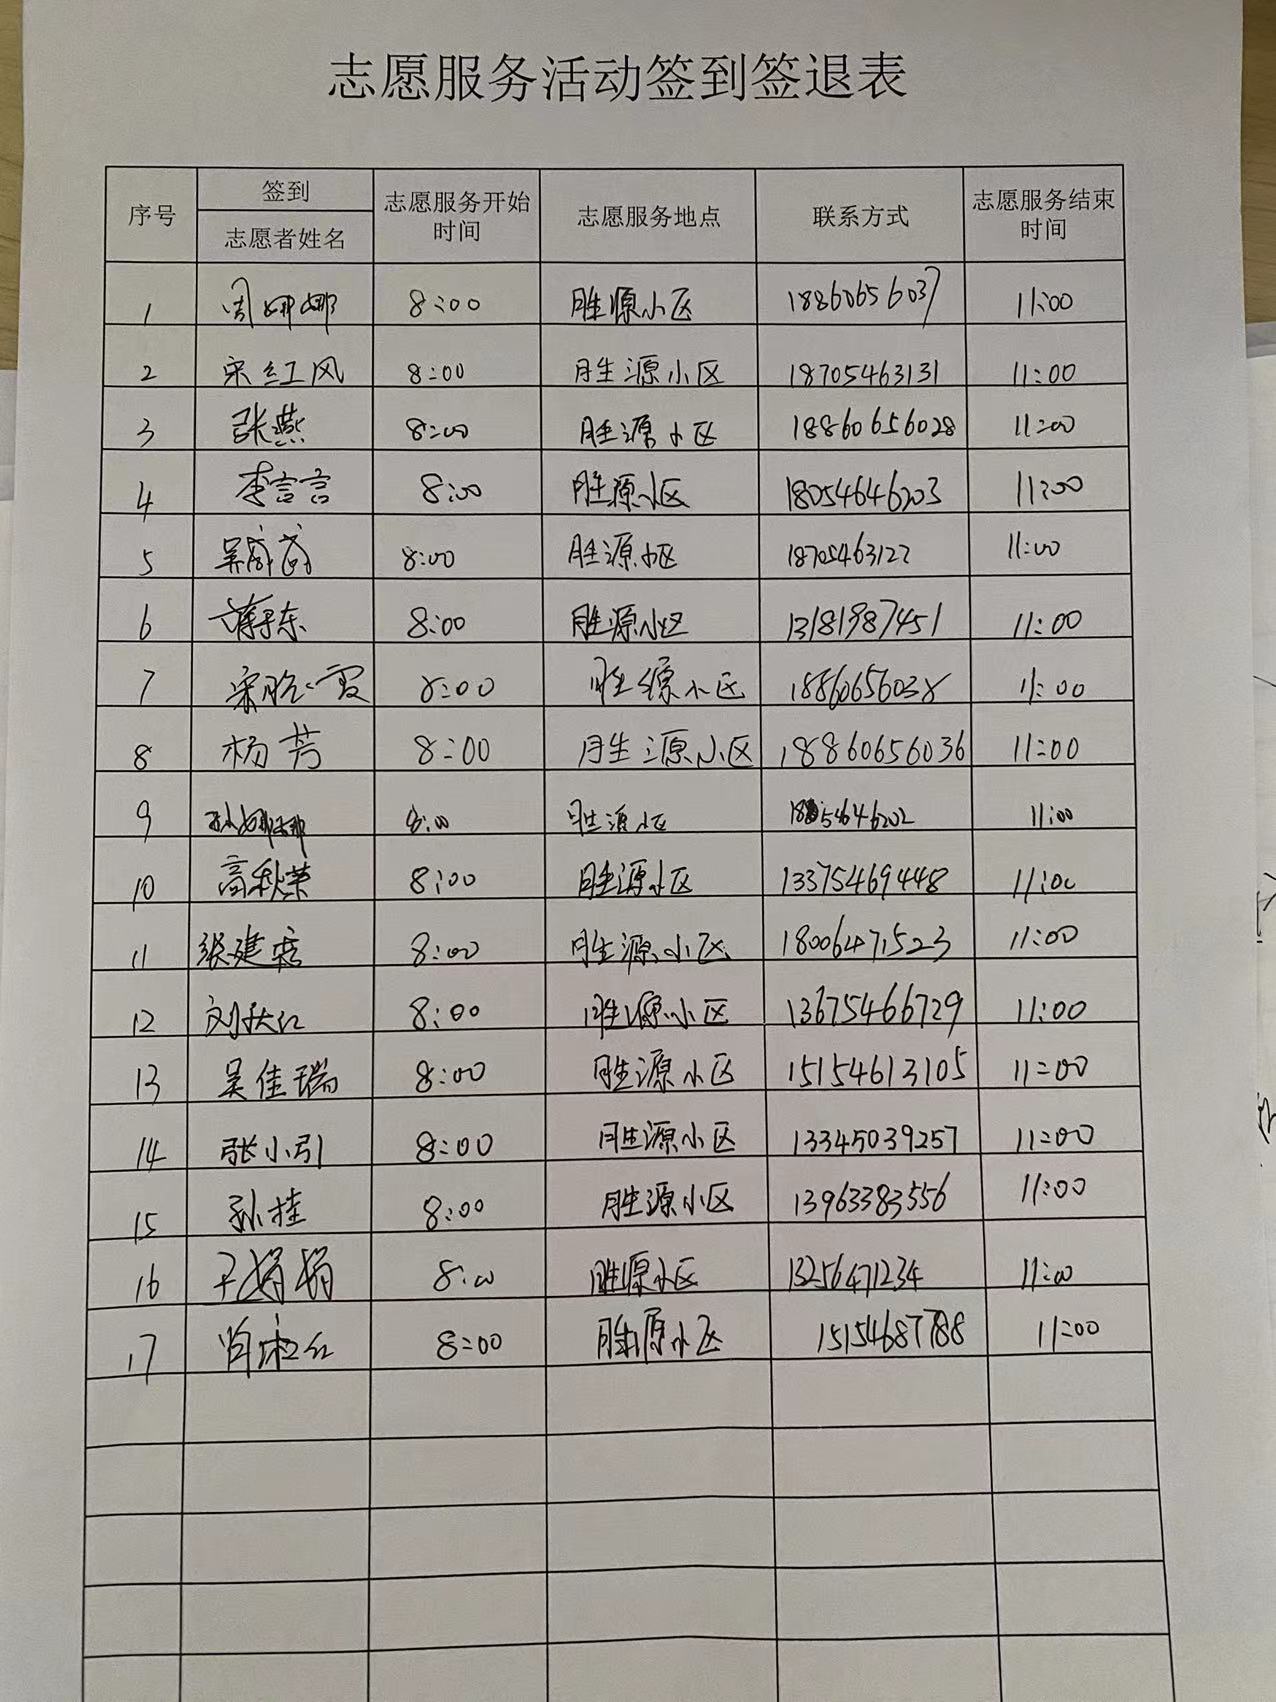 志愿服务活动签到签退表
序号 签到 志愿者姓名 志愿服务开始时间 志愿服务地点 联系方式 志愿服务结束时间
1 周娜娜 8:00 胜源小区 18860656037 11:00
2 宋红风 8:00 胜源小区 18705463131 11:00
3 张燕 8:00 胜源小区 18860656028 11:00
4 李言言 8:00 胜源小区 18054646203 11:00
5 8:00 胜源小区 18705463122 11:00
6 8:00 胜源小区 13181987451 11:00
7 宋晓霞 8:00 胜源小区 18860656038 11:00
8 杨芳 8:00 胜源小区 18860656036 11:00
9 孙娜娜 8:00 胜源小区 11:00
10 高秋荣 8:00 胜源小区 13375469448 11:00
11 张建 8:00 胜源小区 18006471523 11:00
12 刘秋红 8:00 胜源小区 13675466729 11:00
13 吴佳瑞 8:00 胜源小区 15154613105 11:00
14 张小引 8:00 胜源小区 13345039257 11:00
15 孙桂 8:00 胜源小区 13963383556 11:00
16 8:00 胜源小区 13256471234 11:00
17 8:00 胜源小区 15154687788 11:00